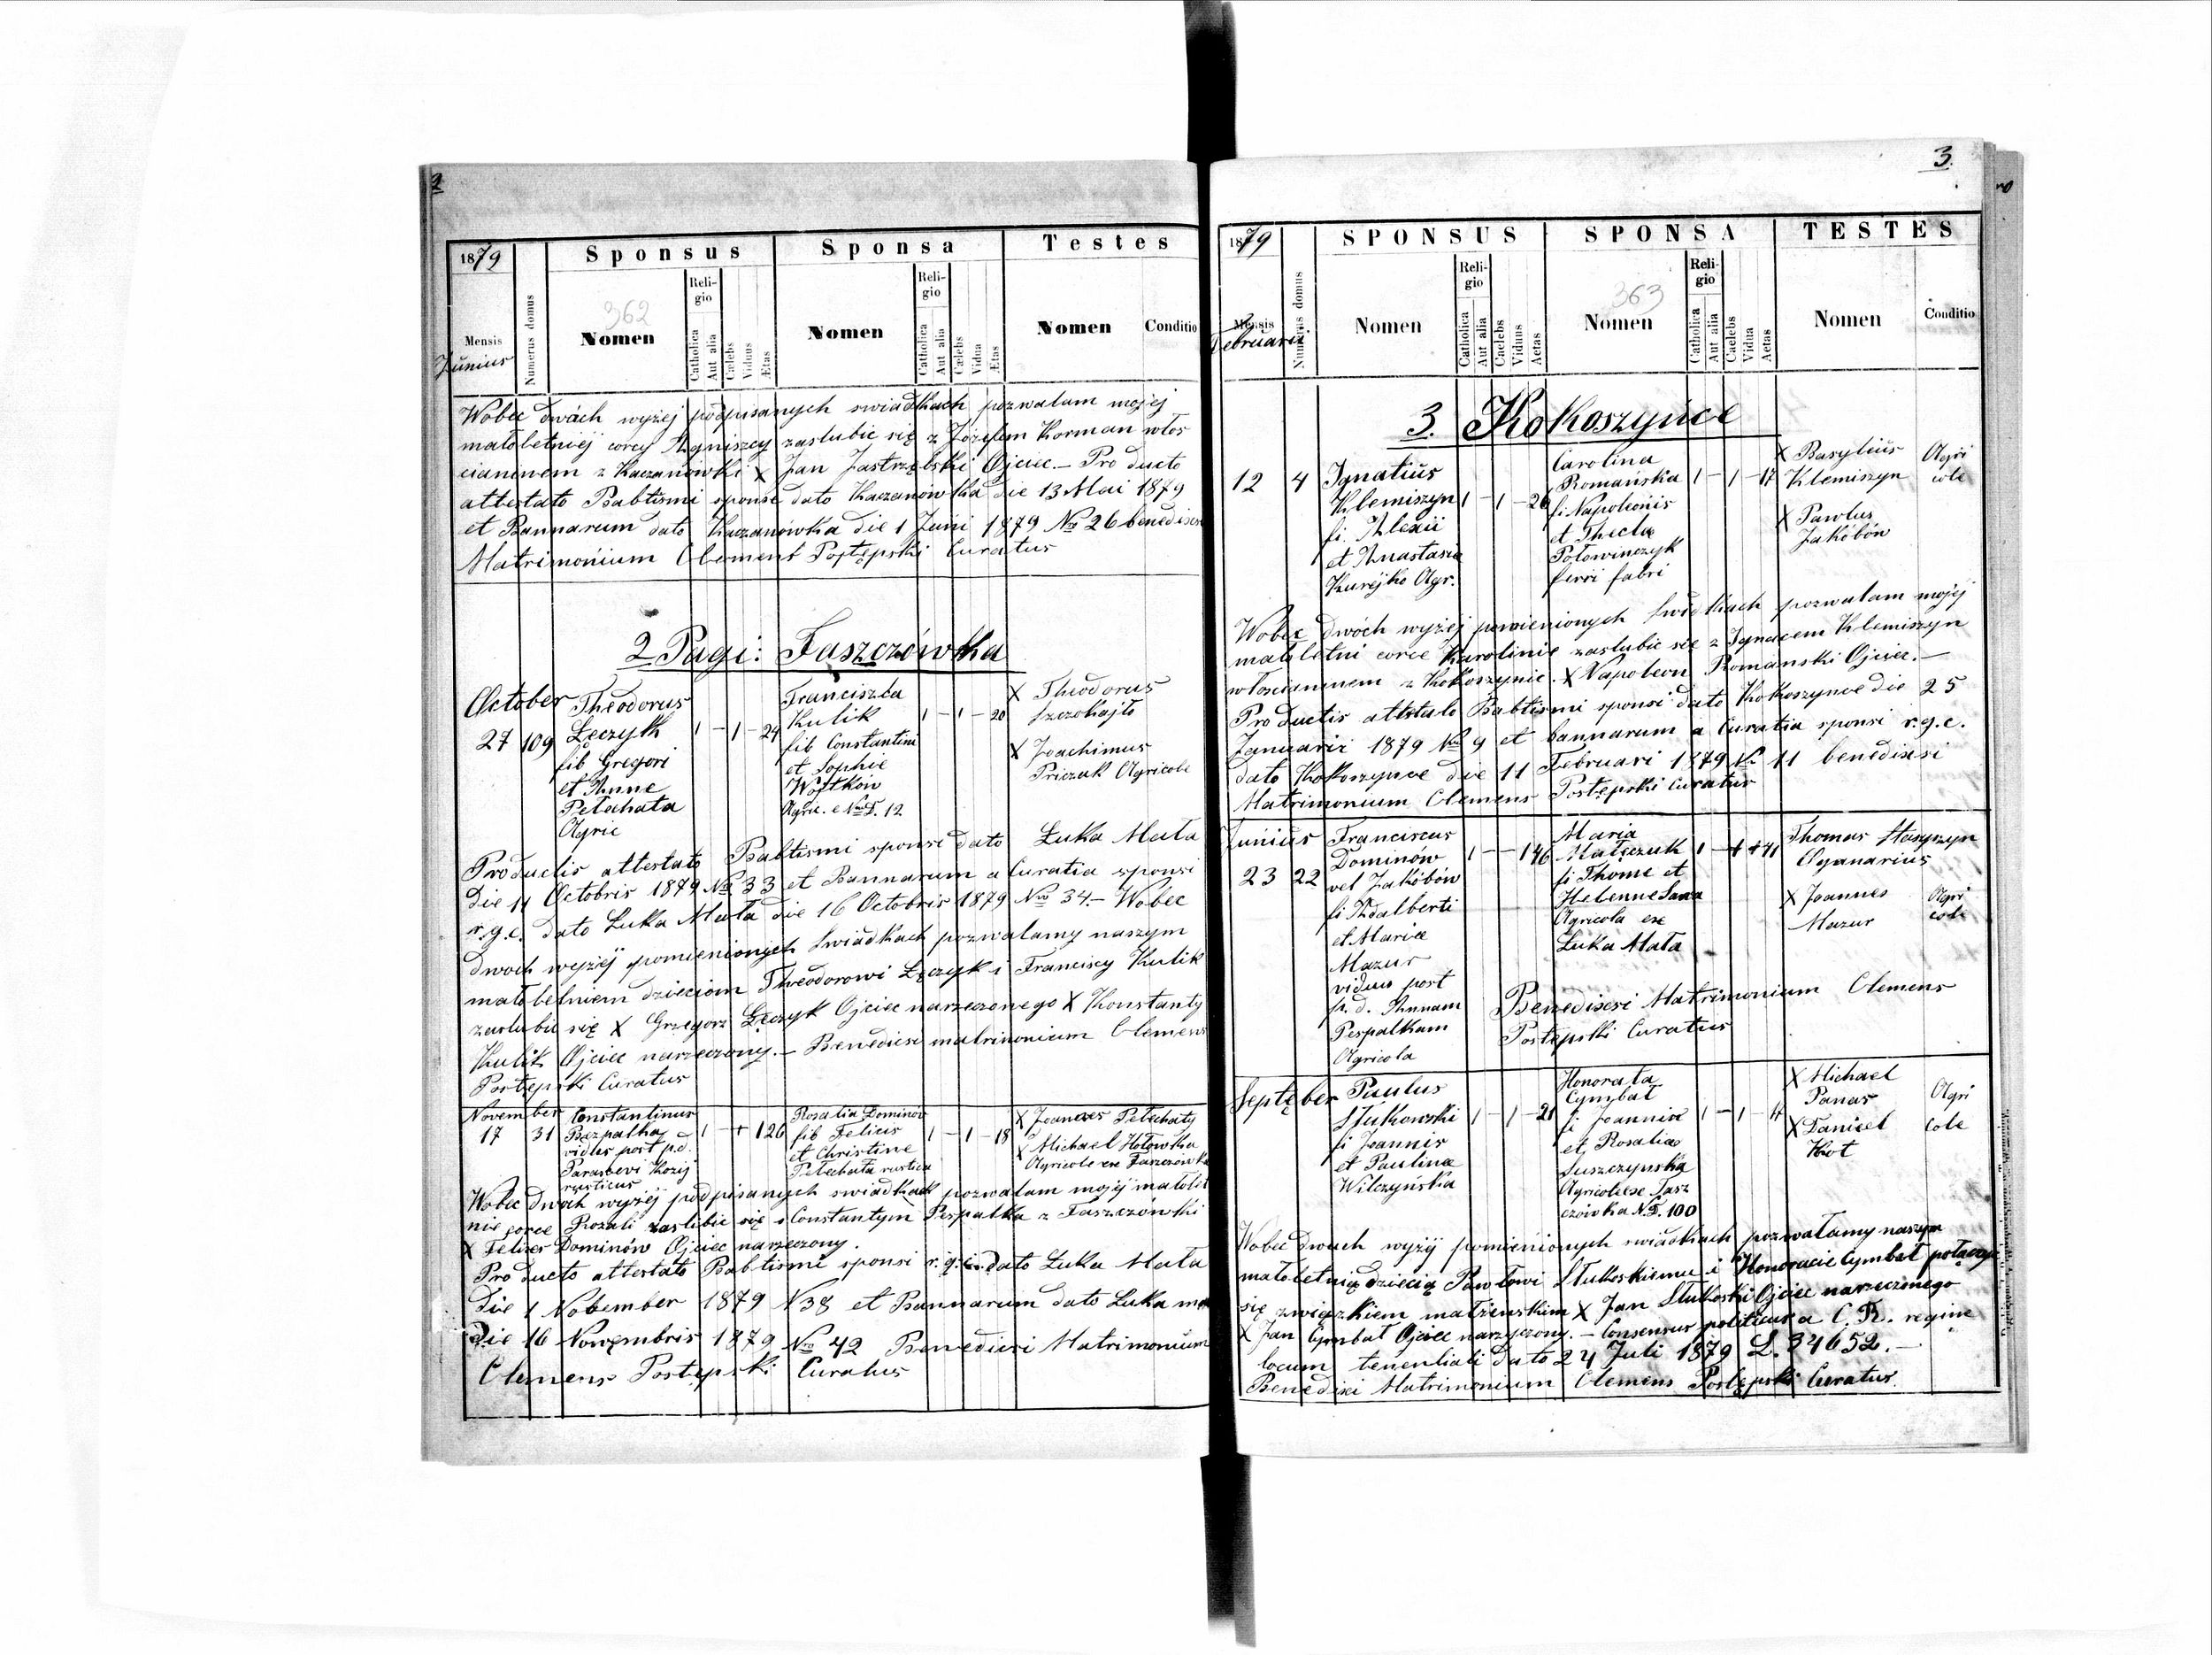 2
1879
Sponsus
Sponsa
Testes
Mensis
Junius
Numerus domus
362
Nomen
Religio
Catholica
Aut alia
Cælebs
Viduus
Ætas
Nomen
Religio
Catholica
Aut alia
Cælebs
Vidua
Ætas
Nomen
Conditio
Wobec dwóch wyżej podpisanych swiadkach pozwalam mojej
małoletniej corcy Agniszcy zaslubic się z Józefem Korman włos
cianinem z Kaczanówki X Jan Jastrzębski Ojciec – Producto
attestato Babtismi sponsi dato Kaczanówka die 13 Mai 1879
et Bannarum dato Kaczanówka die 1 Juni 1879 Nro 26 benedixi
Matrimonium Clement Postępski Curatus
2 Pagi: Faszczówka
October
27 109
Theodorus
Łęczyk
fib Gregori
et Anne
Petachata
Agric
1 – 1 – 24
Franciszka
Kulik
fib Constantini
et Sophie
Wojtków
Agric. e No D. 12
1 – 1 – 20
X Theodorus
Szczokajło
X Joachimus
Priczak Agricole
Productis attestato Babtismi sponsi dato Łuka Mała
Die 11 Octobris 1879 Nro 33 et Bannarum a Curatia sponsi
r.g.c. dato Łuka Mała die 16 Octobris 1879 Nro 34.– Wobec
dwoch wyżej pomienionych Swiadkach pozwalamy naszym
małoletniem dzieciom Theodorowi Łęczyk i Franciscy Kulik
zaslubic się X Grzegorz Łęczyk Ojciec narzeczonego X Konstanty
Kulik Ojciec narzeczony.– Benedixi matrimonium Clemens
Postępski Curatus
November
17 31
Constantinus
Pezpalka
vidus post p.d.
Parasevi Kozij
rusticus
1 – + 1 26
Rosalia Dominów
fib Felicis
et Christine
Petachata rustica
1 – 1 – 18
X Joannes Petachaty
X Michael Hołowka
Agricole ex Faszczówka
Wobec dwóch wyżej podpisanych swiadkach pozwalam mojej małolet
nie corce Rozali zaslubic się s Constantym Pespalka z Faszczówki
X Felixes Dominów Ojciec narzeczony.
Producto attestato Babtismi sponsi r.g.c. dato Łuka Mała
Die 1 Nobember 1879 N38 et Bannarum dato Łuka ma
Die 16 Novembris 1879 Nro 42 Benedixi Matrimonium
Clemens Postępski Curatus
3.
1879
SPONSUS
SPONSA
TESTES
Mensis
Februarii
Numerus domus
Nomen
Religio
Catholica
Aut alia
Caelebs
Viduus
Aetas
363
Nomen
Religio
Catholica
Aut alia
Caelebs
Vidua
Aetas
Nomen
Conditio
3. Kokoszyńce
12 4
Ignatius
Klemiszyn
fi. Alexii
et Anastasia
Kurejko Agr.
1 – 1 – 26
Carolina
Romańska
fi Napoleonis
et Thecla
Połowinczyk
ferri fabri
1 – 1 – 17
X Basylius
Klemiszyn
X Pawlus
Jakóbów
Agri
cole
Wobec dwóch wyżej pomienionych Swiadkach pozwalam mojej
małoletni corce Karolinie zaslubic się z Ignacem Klemiszyn
włoscianinem z Kokoszynic. X Napoleon Romanski Ojciec.–
Productis attstato Babtismi sponsi dato Kokoszynce die 25
Januarii 1879 Nro 9 et bannarum a Curatia sponsi r.g.c.
dato Kokoszynce die 11 Februari 1879 Nr 11 benedixi
Matrimonium Clemens Postępski Curatus
Junius
23 22
Franciscus
Dominów
vel Jakóbów
fi Adalberti
et Mariæ
Mazur
viduus post
p. d. Annam
Pespalkam
Agricola
1 – – 1 46
Maria
Matęczuk
fi Thome et
Helenne Sawa
Agricola ex
Łuka Mała
Thomas Staszyszyn
Oganarius
X Joannes
Mazur
Agri
cole
Benedixi Matrimonium Clemens
Postępski Curatus
Septęber
Paulus
Stukowski
fi Joannis
et Paulinæ
Wilczyńska
1 – 1 – 21
Honorata
Cymbał
fi Joannis
et Rosaliæ
Suszczyńska
Agricole ex Fasz
czówka N.D. 100
X Michael
Panas
X Daniel
Kot
Agri
cole
Wobec dwuch wyżij pomienionych swiadkach pozwałamy naszym
małoletnią dziecią Pawłowi Stukoskiemu i Honoracie Cymbał połączyc
się związkiem matzenskim X Jan Stukoski Ojciec narzeczonego
X Jan Cymbał Ojciec narzyczony.– Consensus politicus a C.R. regine
locum tenentiali dato 24 Juli 1879 L. 34652.–
Benedixi Matrimonium Clemens Postępski Curatus.